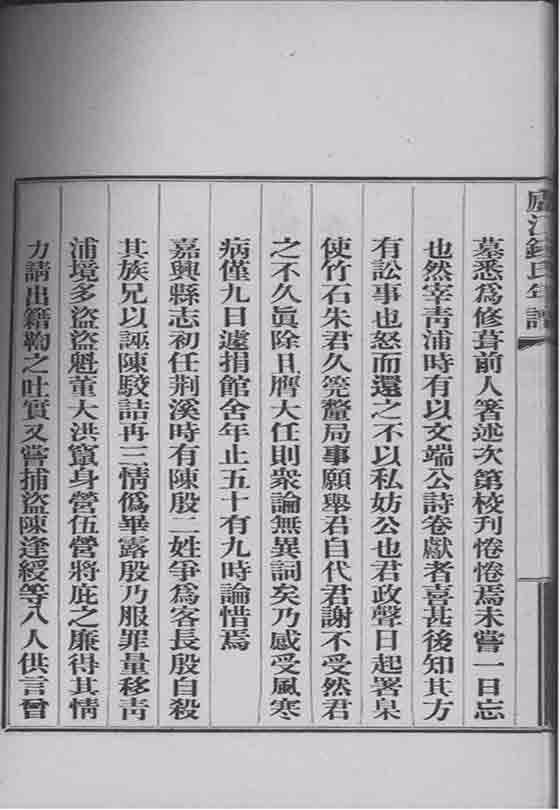 廬江錢氏年譜
墓悉為修葺前人箸述次第校刊惓惓焉未嘗一日忘
也然宰靑浦時有以文端公詩卷獻者喜甚後知其方
有訟事也怒而還之不以私妨公也君政聲日起署臬
使竹石朱君久筦釐局事願舉君自代君謝不受然君
之不久眞除且膺大任則衆論無異詞矣乃感受風寒
病僅九日遽捐館舍年止五十有九時論惜焉
嘉興縣志初任荆溪時有陳殷二姓爭為客長殷自殺
其族兄以誣陳駮詰再三情偽畢露殷乃服罪量移靑
浦境多盜盜魁董大洪竄身營伍營將庇之廉得其情
力請出籍鞫之吐實又嘗捕盜陳逢綬等八人供言曾